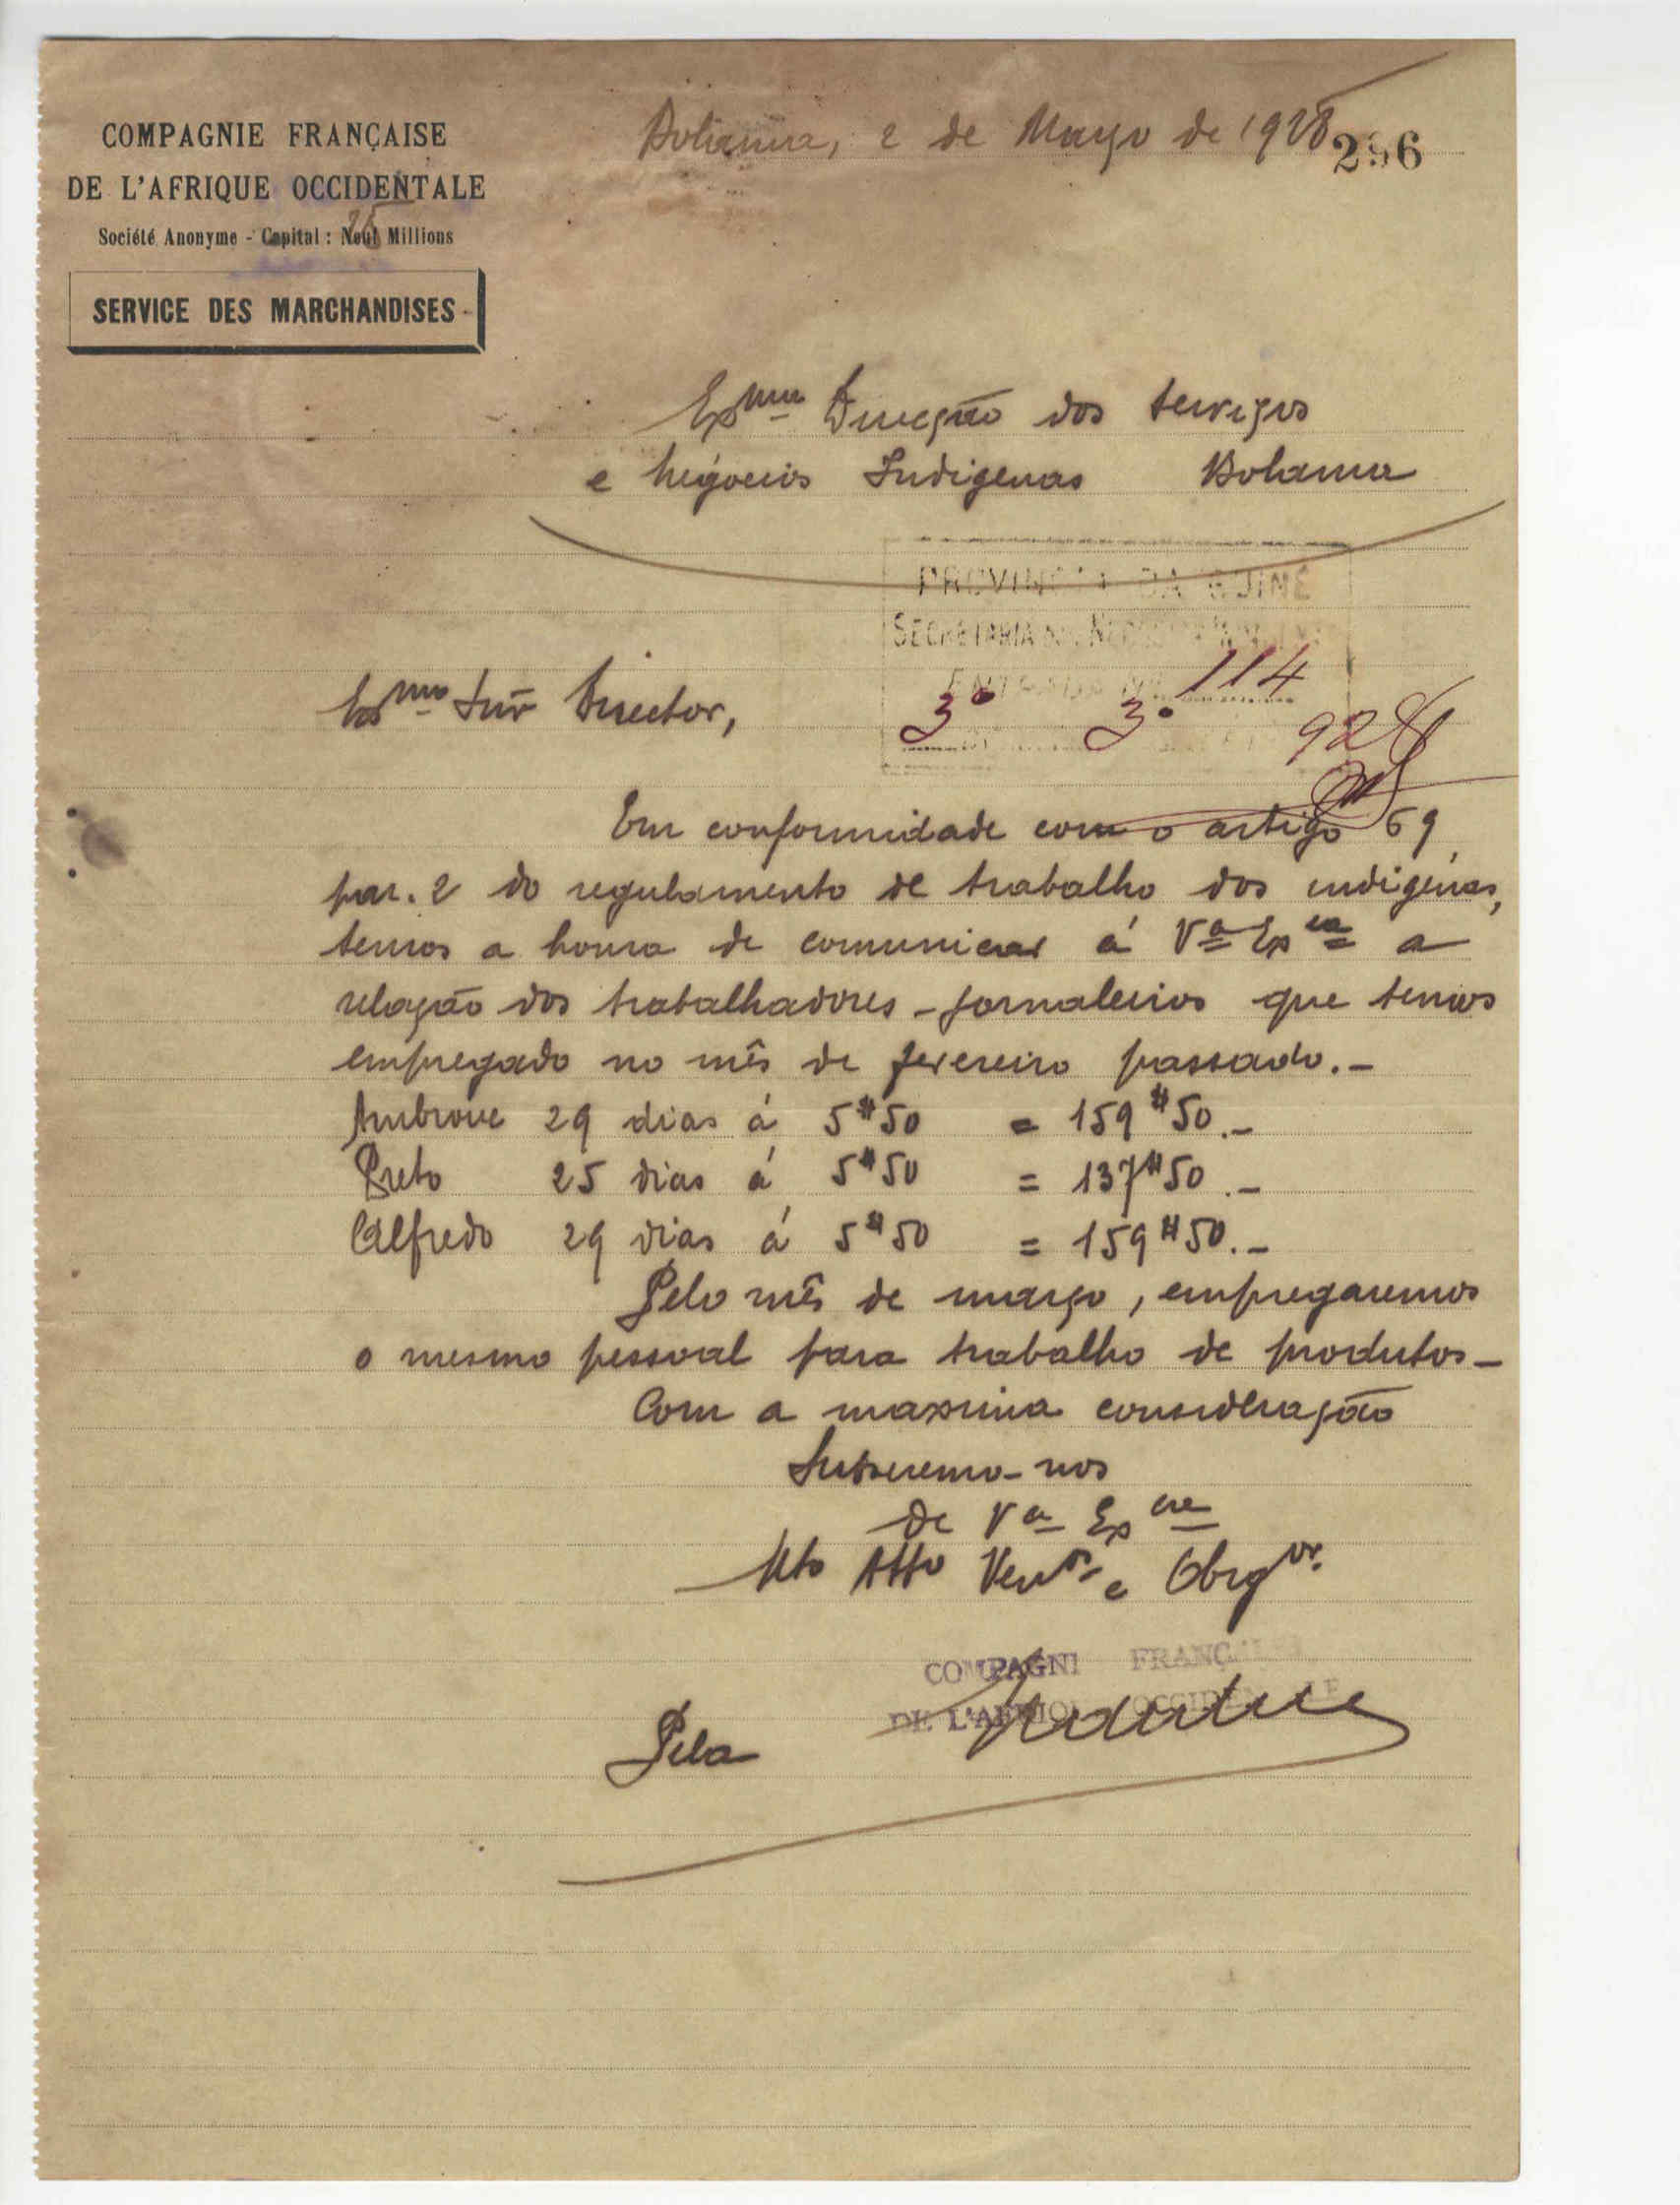 COMPAGNIE FRANÇAISE
DE L'AFRIQUE OCCIDENTALE
Société Anonyme - Capital : Neuf Millions
25
SERVICE DES MARCHANDISES
Bolama, 2 de Março de 1928
296
Exma Direcção dos Serviços
e Négocios Indigenas Bolama
PROVINCIA DA GUINÉ
SECRETARIA DOS NEGOCIOS INDIGENAS
ENTRADA Nº 114
3º 3º 928
Exmo Snr Director,
Em conformidade com o artigo 69
par. 2 do regulamento de trabalho dos indigénas,
temos a honra de comunicar á Va Excia a
relação dos trabalhadores - jornaleiros que temos
empregado no mês de fevereiro passado.-
Ambrose 29 dias á 5$50 = 159$50.-
Preto 25 dias á 5$50 = 137$50.-
Alfredo 29 dias á 5$50 = 159$50.-
Pelo mês de março, empregaremos
o mesmo pessoal para trabalho de produtos-
Com a maxima consideração
Subscremo-nos
de Va Excia
Mto Atto Venrs e Obrgos.
COMPAGNI FRANÇ
DE L'AFRIQUE OCCIDENTALE
Pela